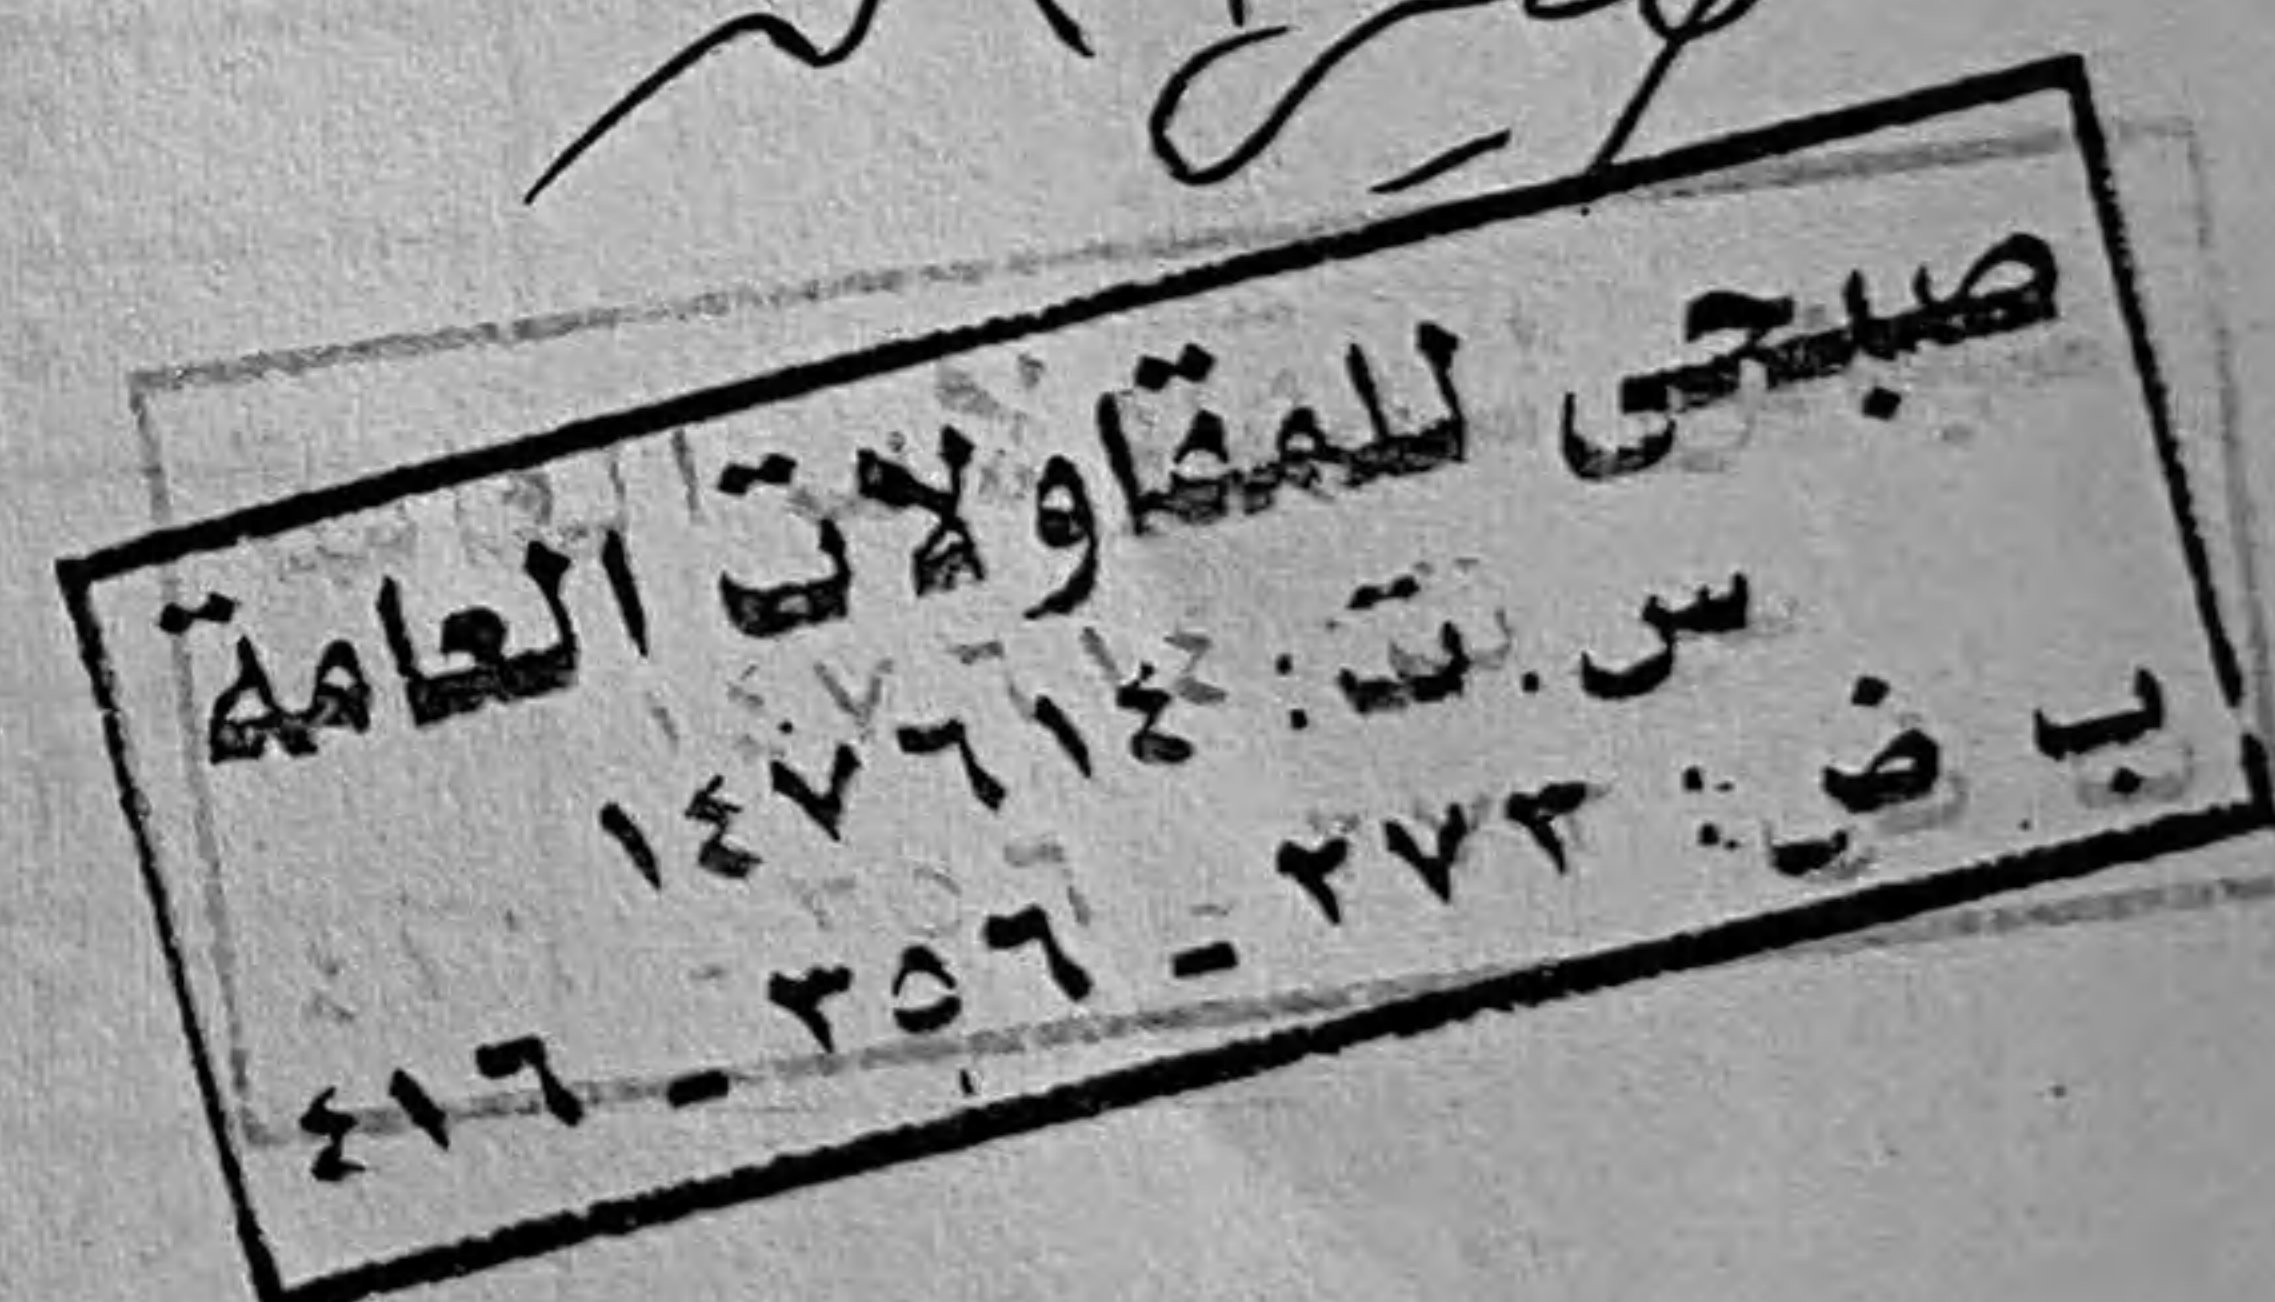 صبحى للمقاولات العامة
س.ت: ١٤٧٦١٤
ب ض: ٢٧٣ - ٣٥٦ - ٤١٦